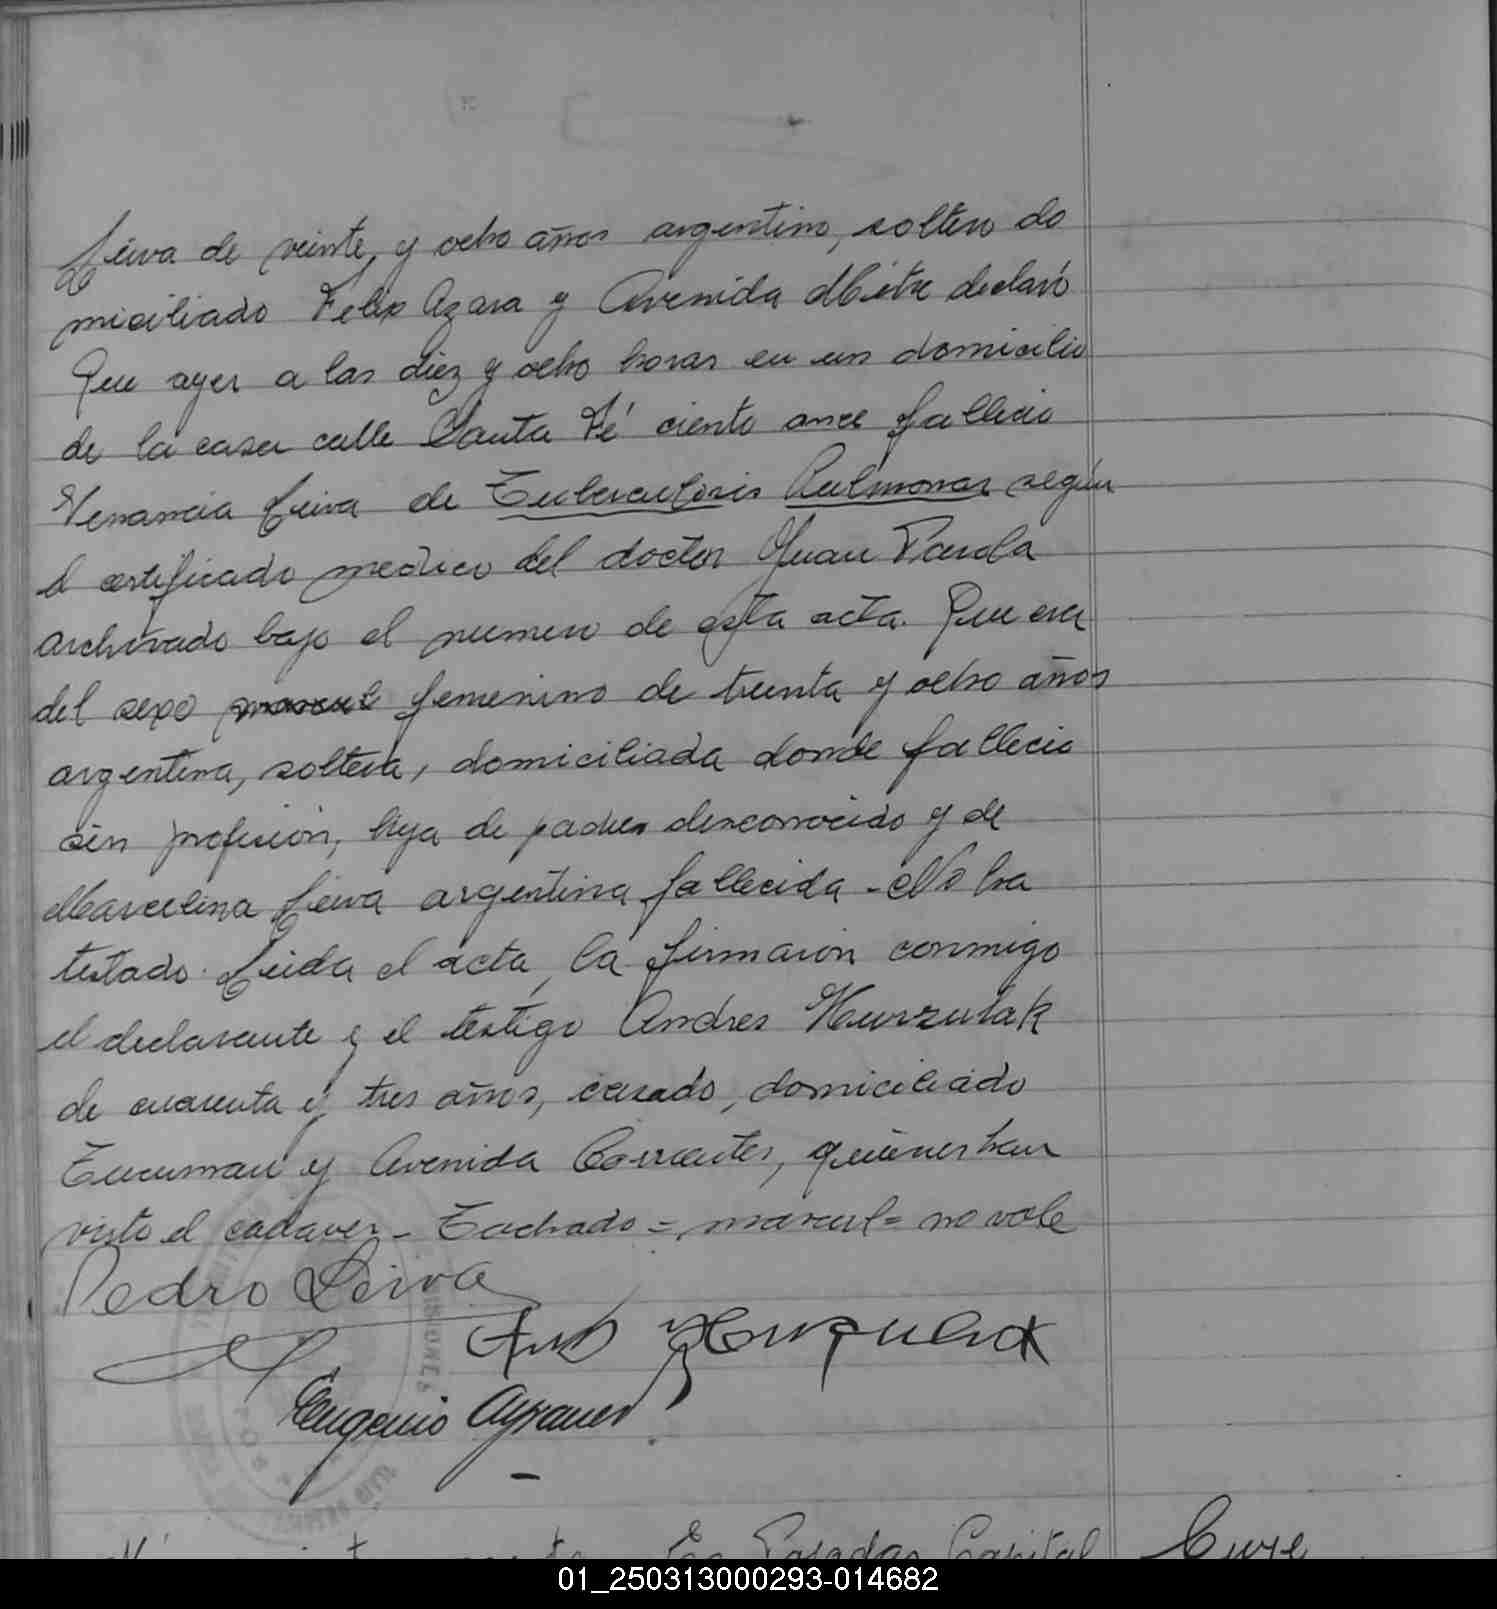 Leiva de veinte y ocho años argentino, soltero do
miciliado Felix Azara y Avenida Mitre declaró
Que ayer a las diez y ocho horas en un domicilio
de la casa calle Santa Fé ciento once fallecio
Venancia Leiva de Tuberculosis Pulmonar según
el certificado medico del doctor Juan Parola
archivado bajo el numero de esta acta. Que era
del sexo mascul femenino de treinta y ocho años
argentina, soltera, domiciliada donde fallecio
sin profesión, hija de padre desconocido y de
Marcelina Leiva argentina fallecida - No ha
testado. Leida el acta, la firmaron conmigo
el declarante y el testigo Andres Hurzulak
de cuarenta y tres años, casado, domiciliado
Tucuman y Avenida Corrientes, quienes han
visto el cadaver - Tachado = mascul = no vale
Pedro Leiva
Hurzulak
Eugenio
En Posadas Capital
01_250313000293-014682